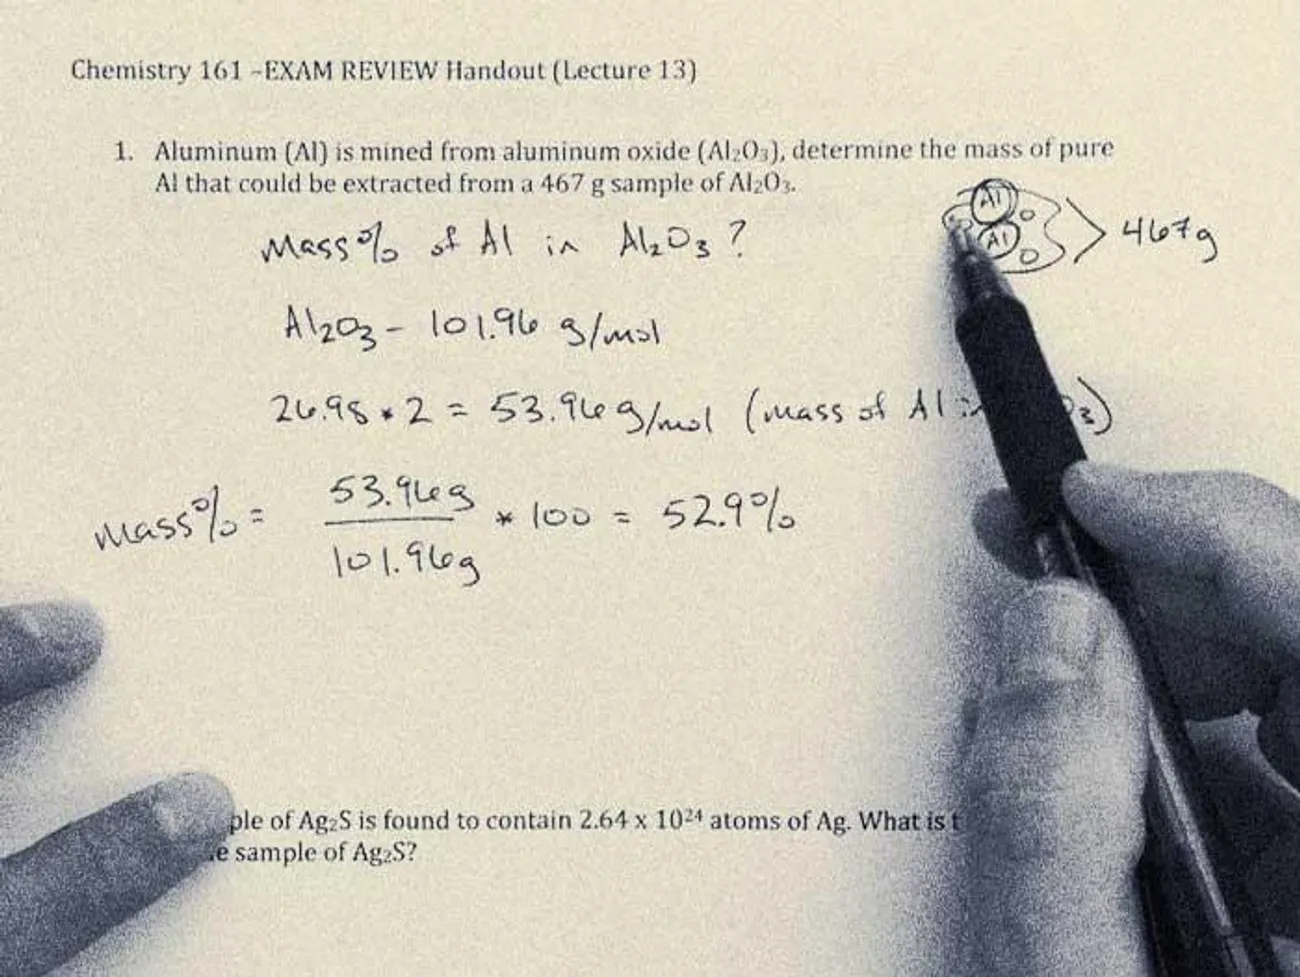 Chemistry 161 -EXAM REVIEW Handout (Lecture 13)
1. Aluminum (Al) is mined from aluminum oxide (Al₂O₃), determine the mass of pure
Al that could be extracted from a 467 g sample of Al₂O₃.
Al O
Al O
467g
Mass % of Al in Al₂O₃ ?
Al₂O₃ - 101.96 g/mol
26.98 * 2 = 53.96 g/mol (mass of Al
Mass % = 53.96g / 101.96g * 100 = 52.9%
of Ag₂S is found to contain 2.64 x 10²⁴ atoms of Ag. What is
sample of Ag₂S?